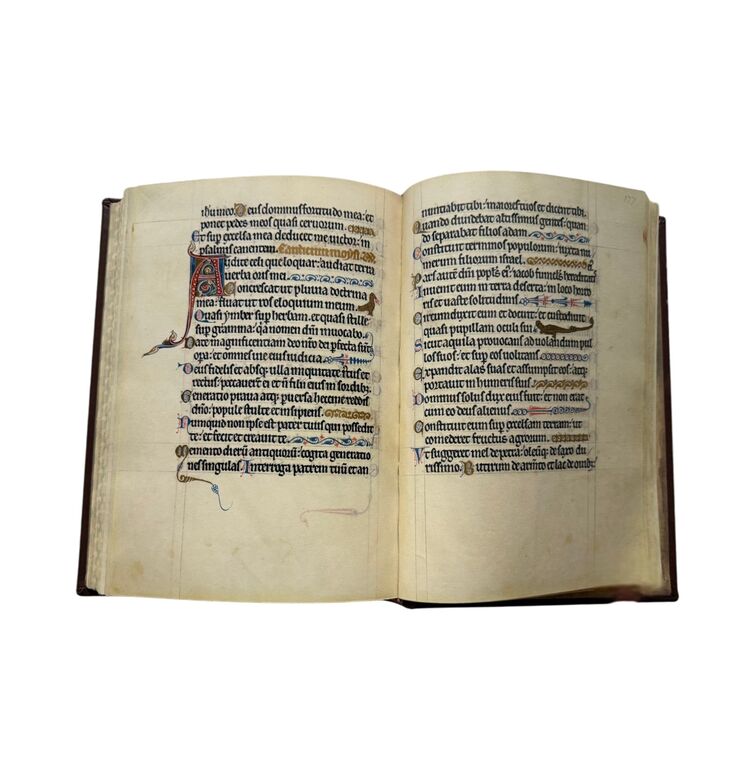 ihu meo. Deus dominus fortitudo mea: et
ponet pedes meos quasi ceruorum.
Et sup excelsa mea deducet me uictor: in
psalmis canentem. Canticum moysi.
Audite celi que loquar: audiat terra
uerba oris mei.
Concrescat ut pluuia doctrina
mea: fluat ut ros eloquium meum.
Quasi ymber sup herbam. et quasi stille
sup gramina: qa nomen dñi inuocabo.
Date magnificentiam deo nro: dei perfecta sunt
opa. et omnes uie eius iudicia.
Deus fidelis et absq ulla iniquitate et
rectus: peccauert ei et ñ filii eius in sordibz.
Generatio praua atq puersa heccine reddis
dño: popule stulte et insipiens.
Numquid non ipse est pater tuus qui possedit
te: et fecit et creauit te.
Memento dierū antiquorum: cogita generatio
nes singulas. Interroga patrem tuū et an
nunciabit tibi: maiores tuos et dicent tibi.
Quando diuidebat altissimus gentes: quan
do separabat filios adam.
Constituit terminos populorum: iuxta nu
merum filiorum israel.
Pars aūt dñi popłs ei: iacob funicłs hereditatis
Inuenit eum in terra deserta: in loco horro
ris et uaste solitudinis.
Circumduxit eum et docuit: et custodiuit
quasi pupillam oculi sui.
Sicut aquila prouocans ad uolandum pul
los suos: et sup eos uolitans.
Expandit alas suas et assumpsit eos: atq
portauit in humeris suis.
Dominus solus dux eius fuit: et non erat
cum eo deus alienus.
Constituit eum sup excelsam terram: ut
comederet fructus agrorum.
Ut suggeret mel de petra: oleūq de saxo du
rissimo. Butirum de armento et lac de ouibz